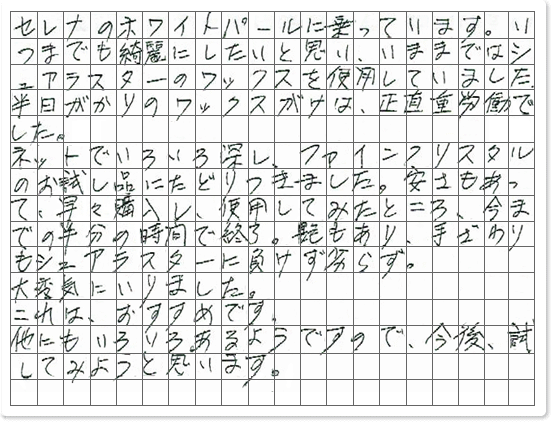 セレナのホワイトパールに乗っています。い
つまでも綺麗にしたいと思い、いままではシ
ュアラスターのワックスを使用していました。
半日がかりのワックスがけは、正直重労働で
した。
ネットでいろいろ深し、ファインクリスタル
のお試し品にたどりつきました。安さもあっ
て、早々購入し、使用してみたところ、今ま
での半分の時間で終了。艶もあり、手ざわり
もシュアラスターに負けず劣らず。
大変気にいりました。
これは、おすすめです。
他にもいろいろあるようですので、今後、試
してみようと思います。